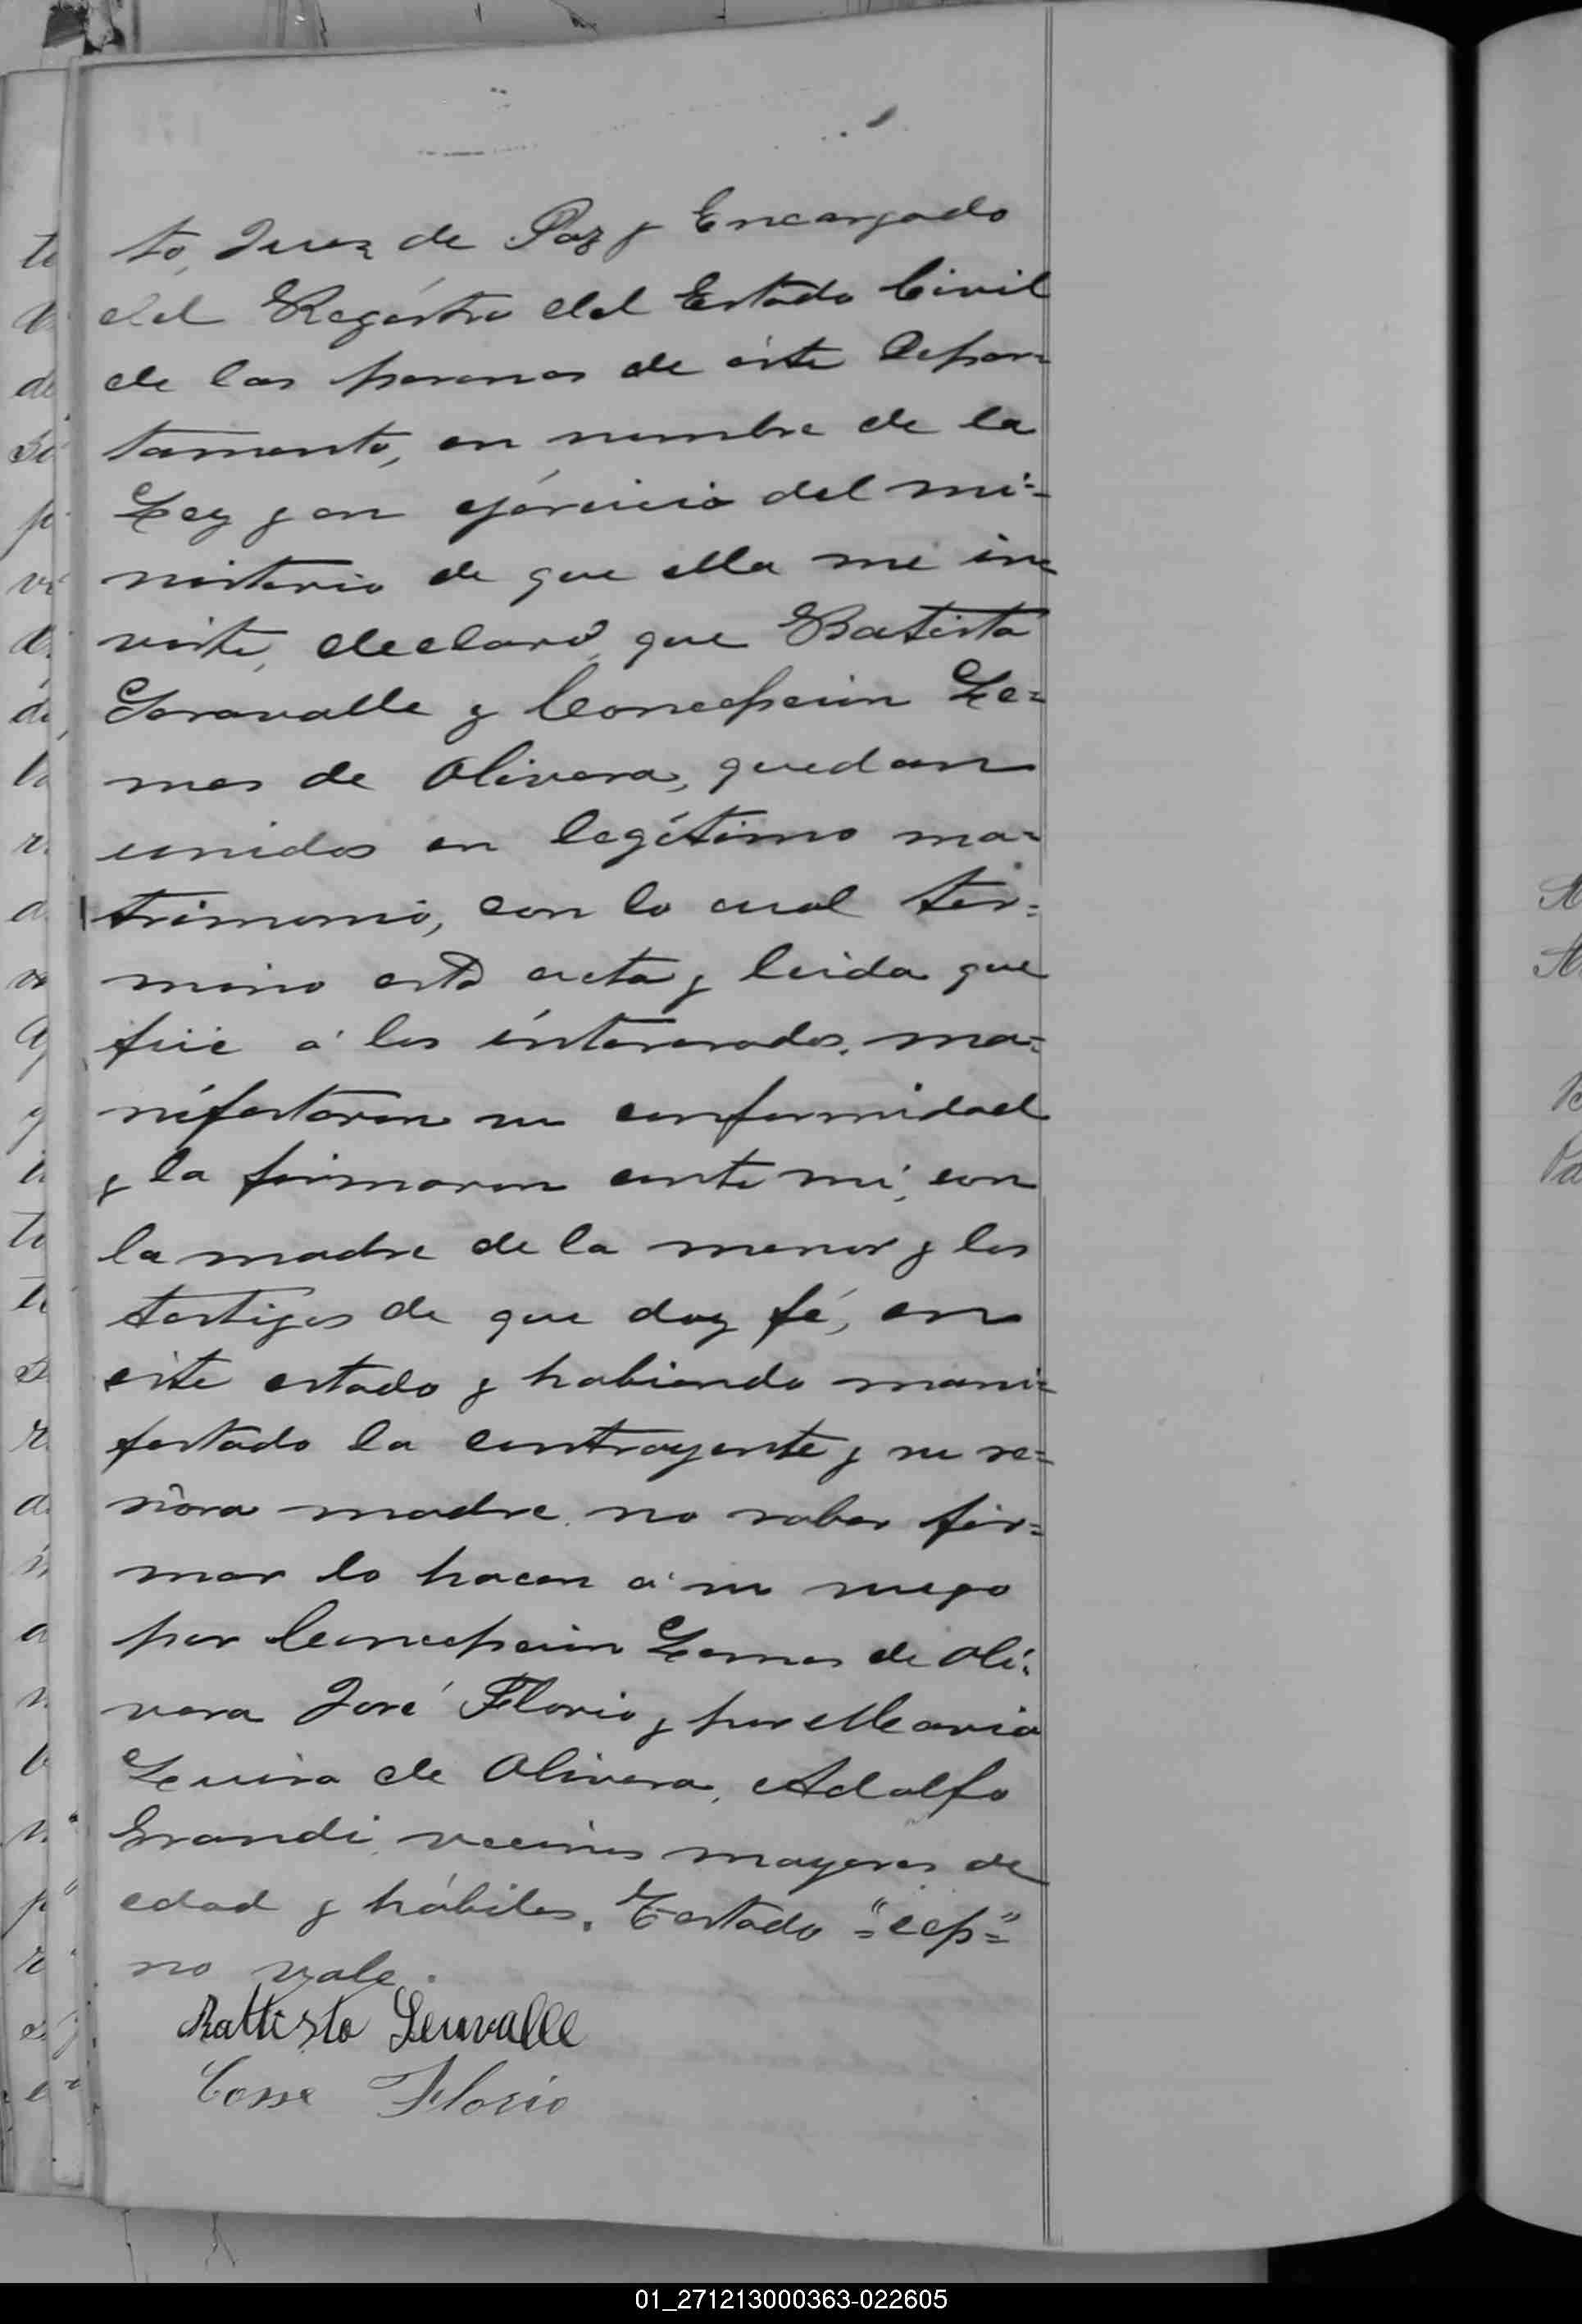 to, Juez de Paz y Encargado
del Registro del Estado Civil
de las personas de éste Depar-
tamento, en nombre de la
Ley y en ejercicio del mi=
nisterio de que ella me in-
viste, declaro, que Batista
Seravalle y Concepcion Le=
mes de Olivera, quedan
unidos en legítimo ma=
trimonio, con lo cual ter=
mino esta acta y leida que
fué á los interesados, ma=
nifestaron su conformidad
y la firmaron ante mi, con
la madre de la menor y los
testigos de que doy fé, en
este estado y habiendo mani=
festado la contrayente y su se=
ñora madre no saber fir=
mar lo hacen á su ruego
por Concepcion Lemes de Oli=
vera José Florio y por Maria
Luisa de Olivera, Adolfo
Grandi, vecinos mayores de
edad y hábiles. Testado "=cep="
no vale.
Battista Seravalle
Florio
01_271213000363-022605